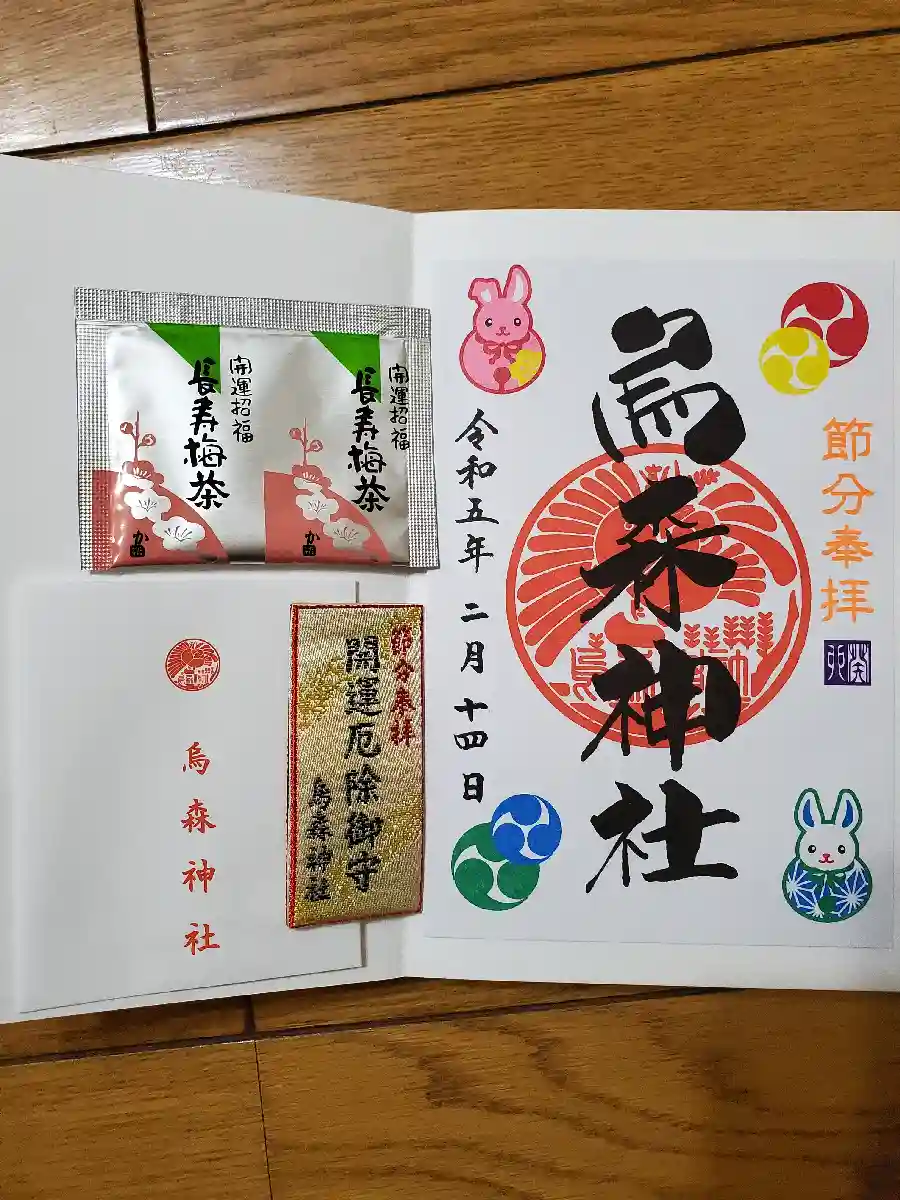 節分奉拝
烏森神社
令和五年 二月 十四日
開運招福
長寿梅茶
開運招福
長寿梅茶
節分奉拝
開運厄除御守
烏森神社
烏森神社